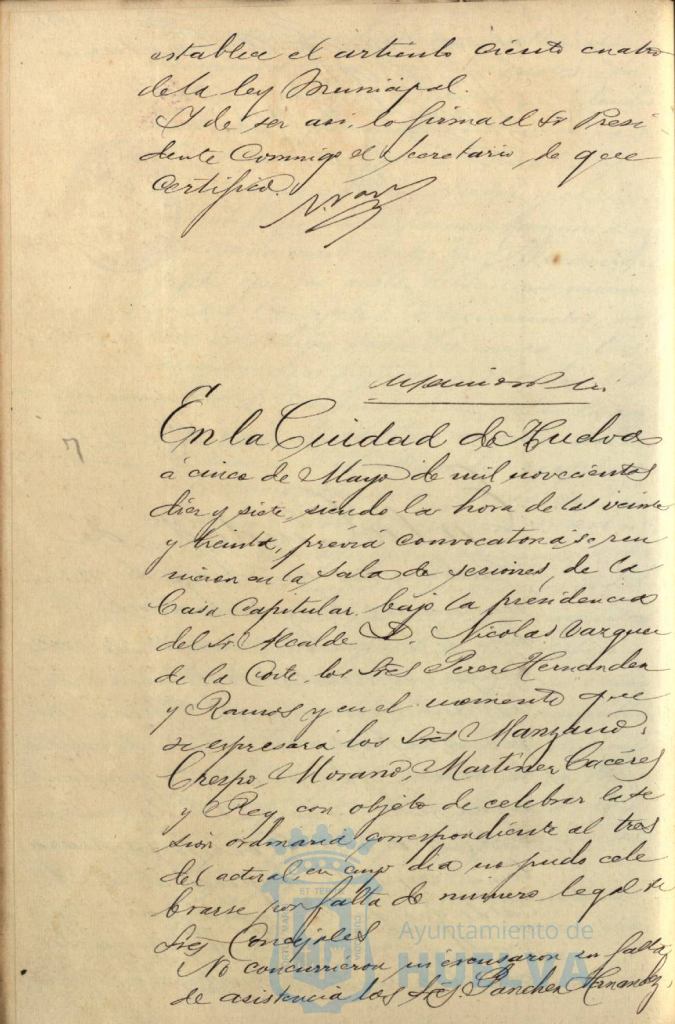 establece el artículo ciento cuatro
de la ley Municipal.
Y de ser asi, lo firma el Sr Presi
dente Conmigo el Secretario, de que
Certifico.
En la Ciudad de Huelva
á cinco de Mayo de mil novecientos
diez y siete, siendo la hora de las veinte
y treinta, prévia convocatoria se reu
nieron en la Sala de sesiones, de la
Casa Capitular bajo la presidencia
del Sr Alcalde D. Nicolas Vazquez
de la Corte, los Sres Perez Hernandez
y Ramos y en el momento que
se espresará los Sres Manzano,
Crespo, Morano, Martinez Cacéres
y Rey con objeto de celebrar la se
sion ordinaria correspondiente al tres
del actual, en cuyo dia no pudo cele
brarse por falta de número legal de
Sres Concejales
No concurrieron ni escusaron su falta
de asistencia los Sres. Sanchez Hernandez,
Ayuntamiento de
HUELVA